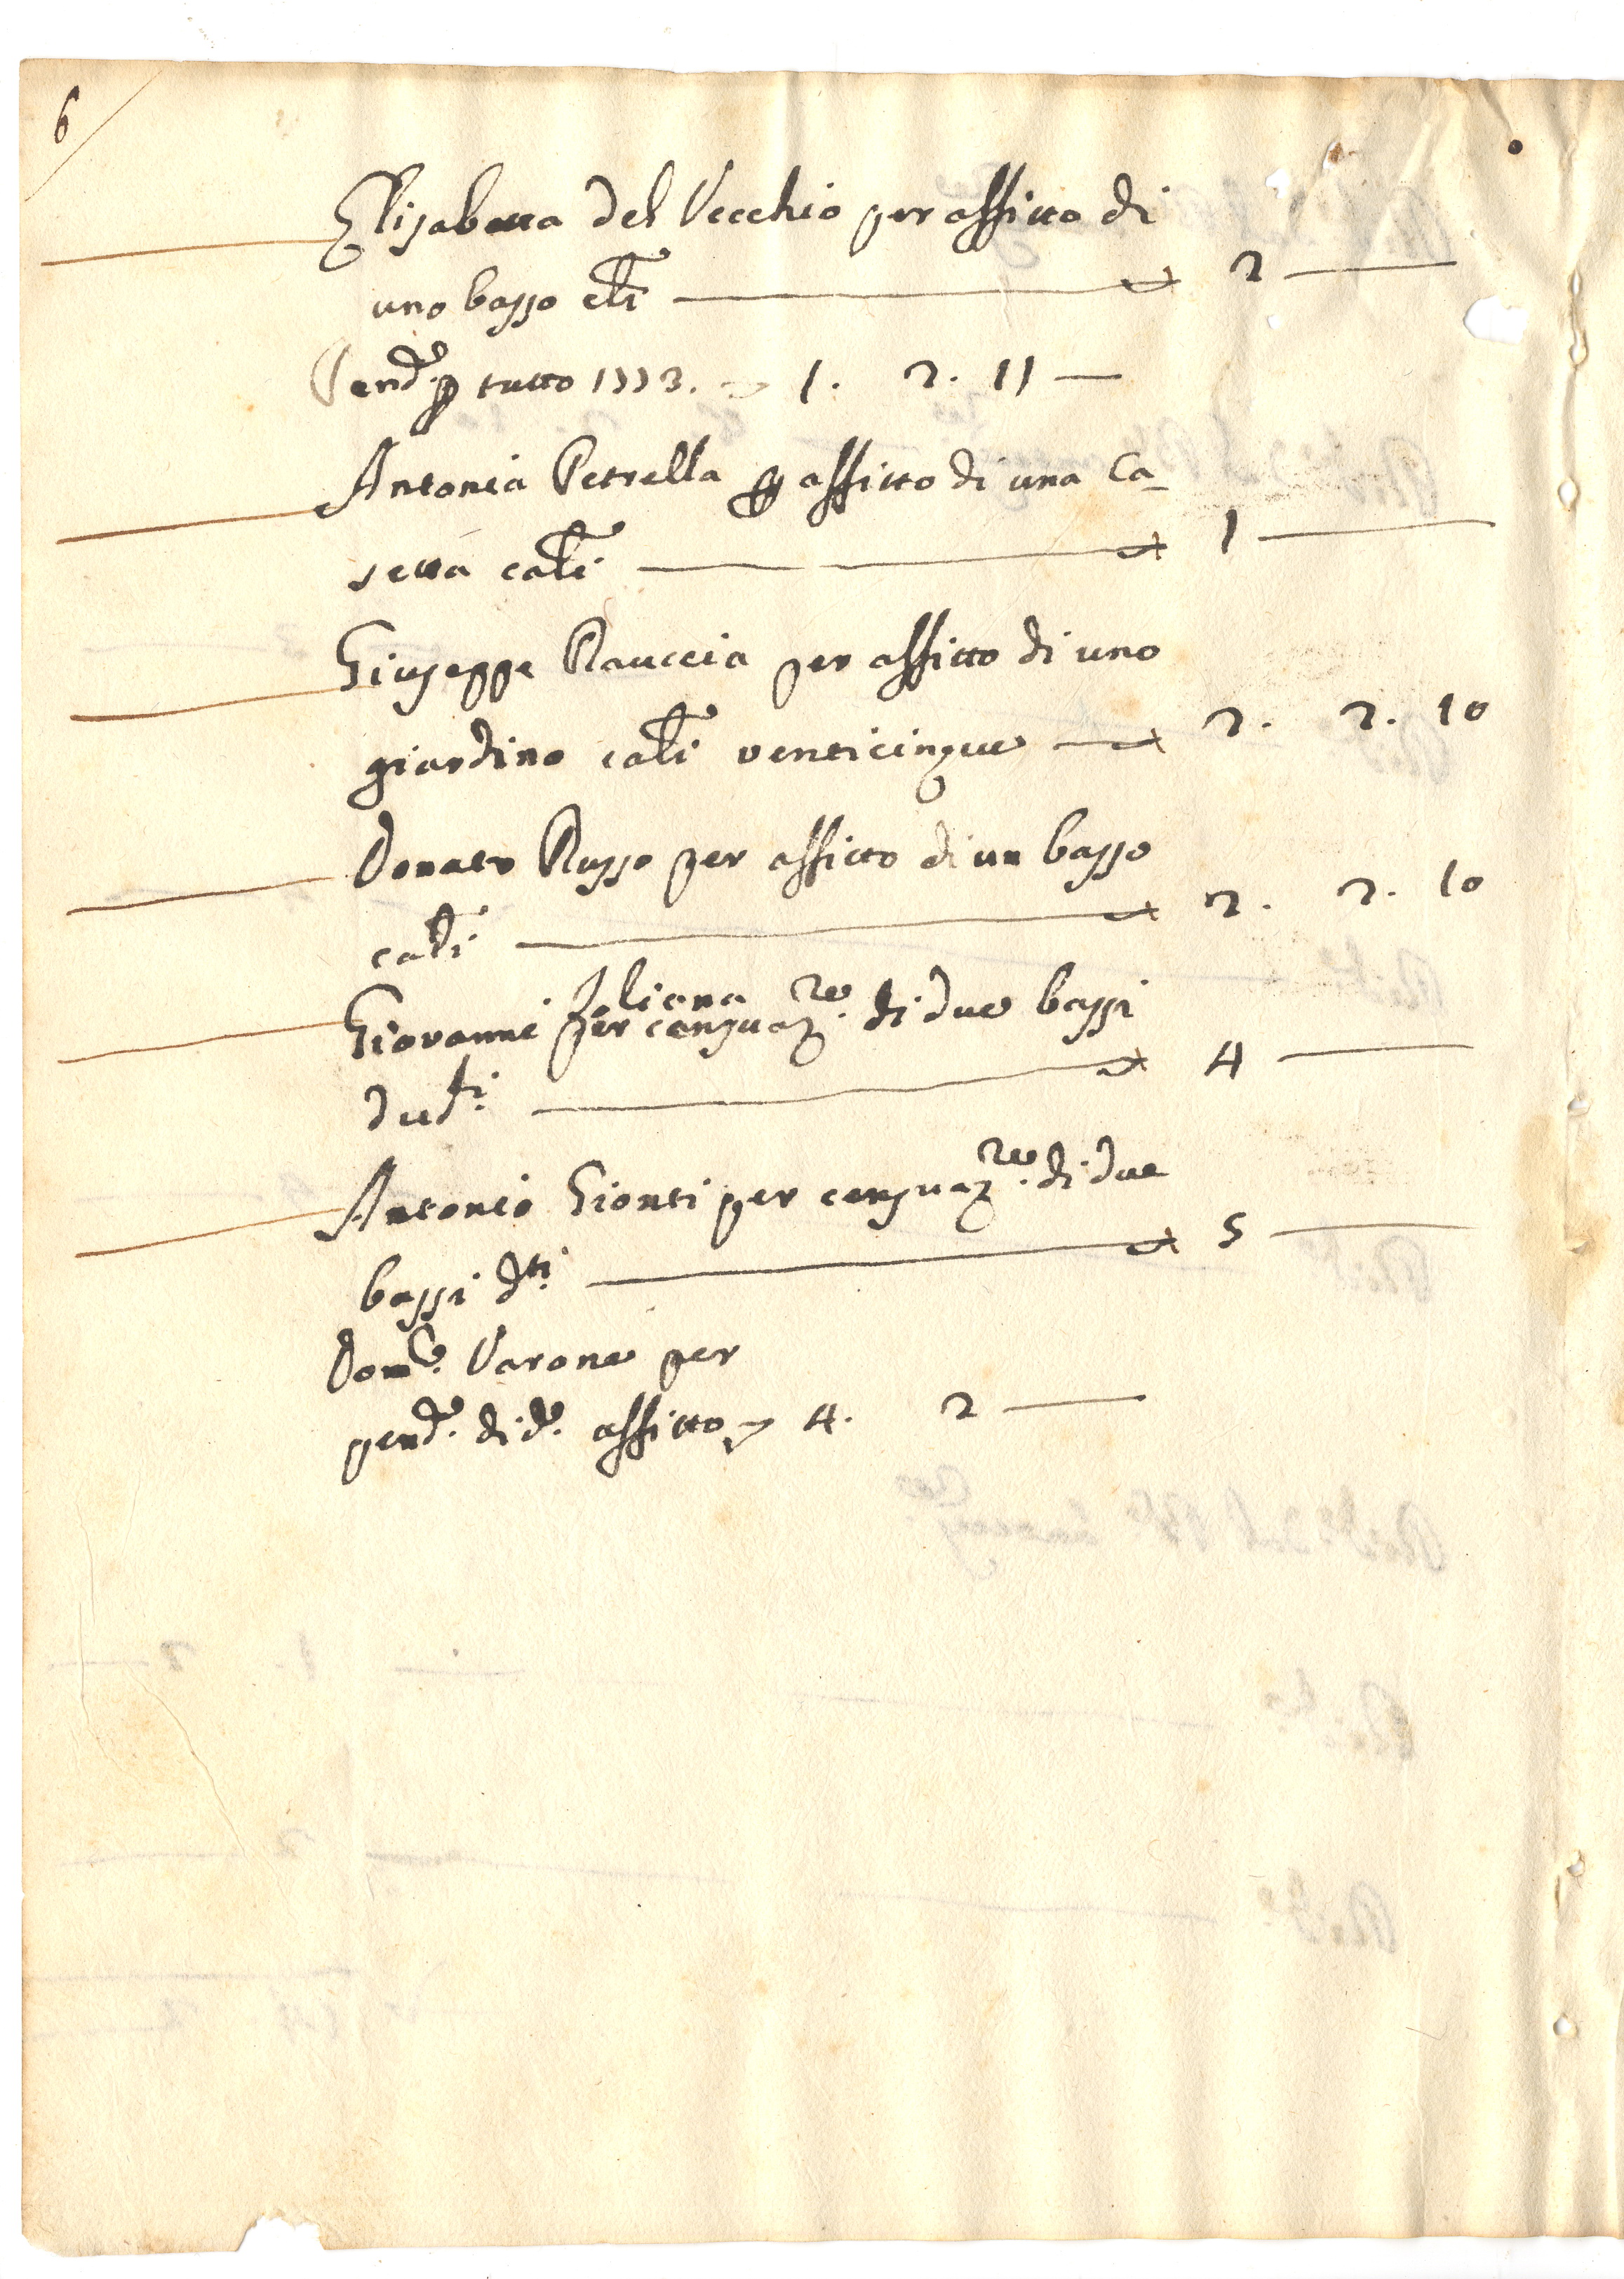 6
Elisabetta del Vecchio per affitto di
uno basso 2
Pend.e p tutto 1773. 1. 2. 11
Antonia Petrella p affitto di una Ca-
setta carli 1
Giuseppe Rauccia per affitto di uno
giardino carli venticinque 2. 2. 10
Donato Russo per affitto di un basso
carli 2. 2. 10
Iuliana
Giovanni per censuaz.ne di due bassi
duti 4
Antonio Gionti per censuaz.ne di due
bassi dti 5
Dom.co Varone per
pend.e di do. affitto 4. 2